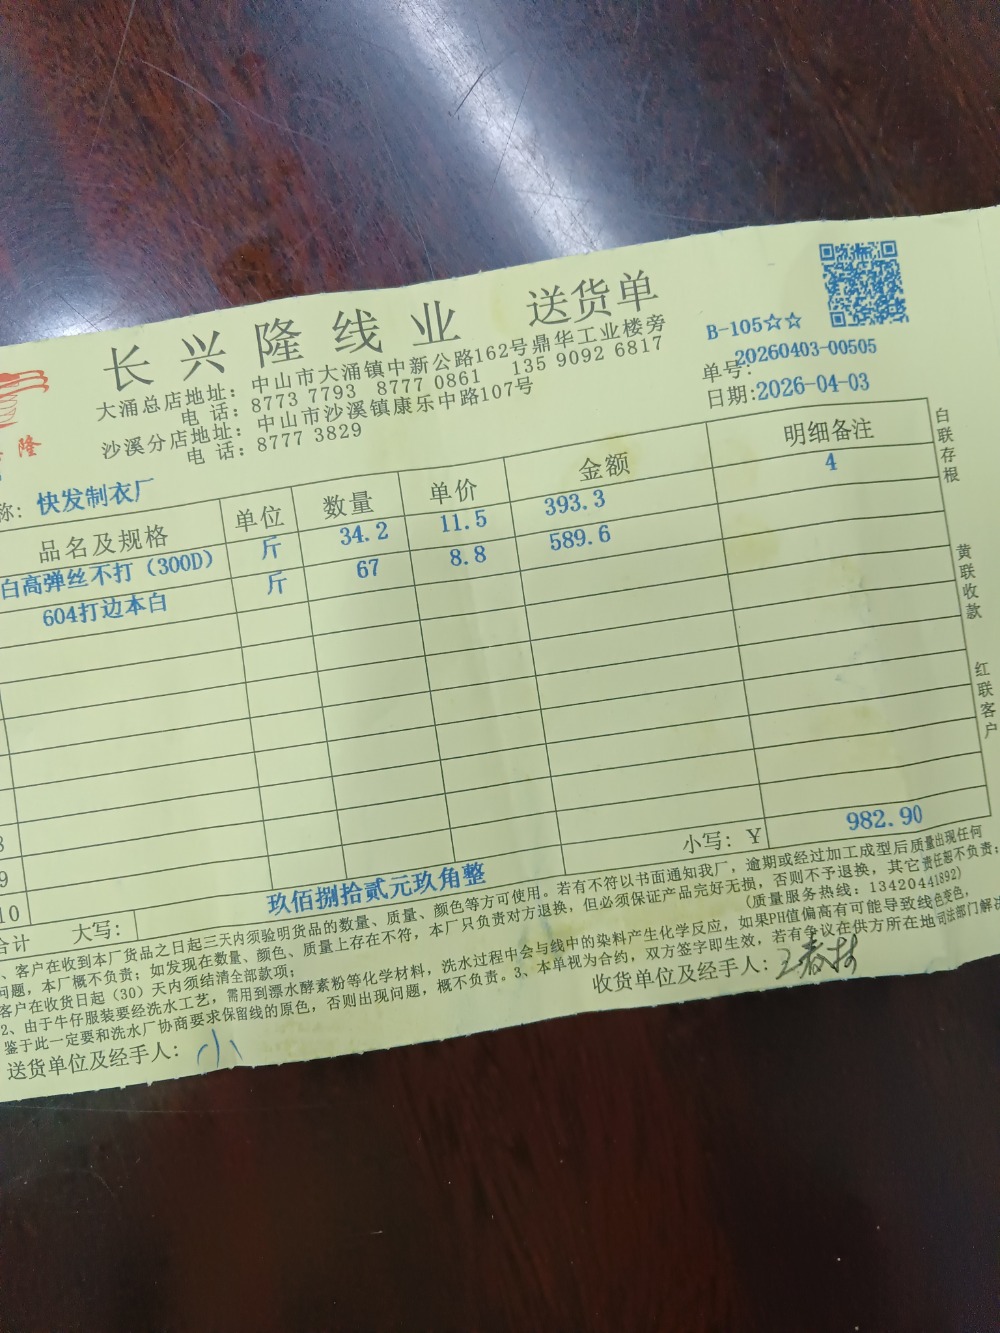 长兴隆线业 送货单
B-105☆☆
大涌总店地址：中山市大涌镇中新公路162号鼎华工业楼旁
电 话：8773 7793 8777 0861 135 9092 6817
单号:20260403-00505
沙溪分店地址：中山市沙溪镇康乐中路107号
日期:2026-04-03
电 话：8777 3829
隆
称：快发制衣厂
品名及规格 单位 数量 单价 金额 明细备注
白高弹丝不打（300D） 斤 34.2 11.5 393.3 4
604打边本白 斤 67 8.8 589.6
8
9
10
合计 大写：玖佰捌拾贰元玖角整 小写：￥ 982.90
、客户在收到本厂货品之日起三天内须验明货品的数量、质量、颜色等方可使用。若有不符以书面通知我厂，逾期或经过加工成型后质量出现任何
问题，本厂概不负责；如发现在数量、颜色、质量上存在不符，本厂只负责对方退换，但必须保证产品完好无损，否则不予退换，其它责任恕不负责；
客户在收货日起（30）天内须结清全部款项； (质量服务热线：13420441892)
2、由于牛仔服装要经洗水工艺，需用到漂水酵素粉等化学材料，洗水过程中会与线中的染料产生化学反应，如果PH值偏高有可能导致线色变色，
鉴于此一定要和洗水厂协商要求保留线的原色，否则出现问题，概不负责。3、本单视为合约，双方签字即生效，若有争议在供方所在地司法部门解决
送货单位及经手人：小
收货单位及经手人：王春梅
白联存根
黄联收款
红联客户